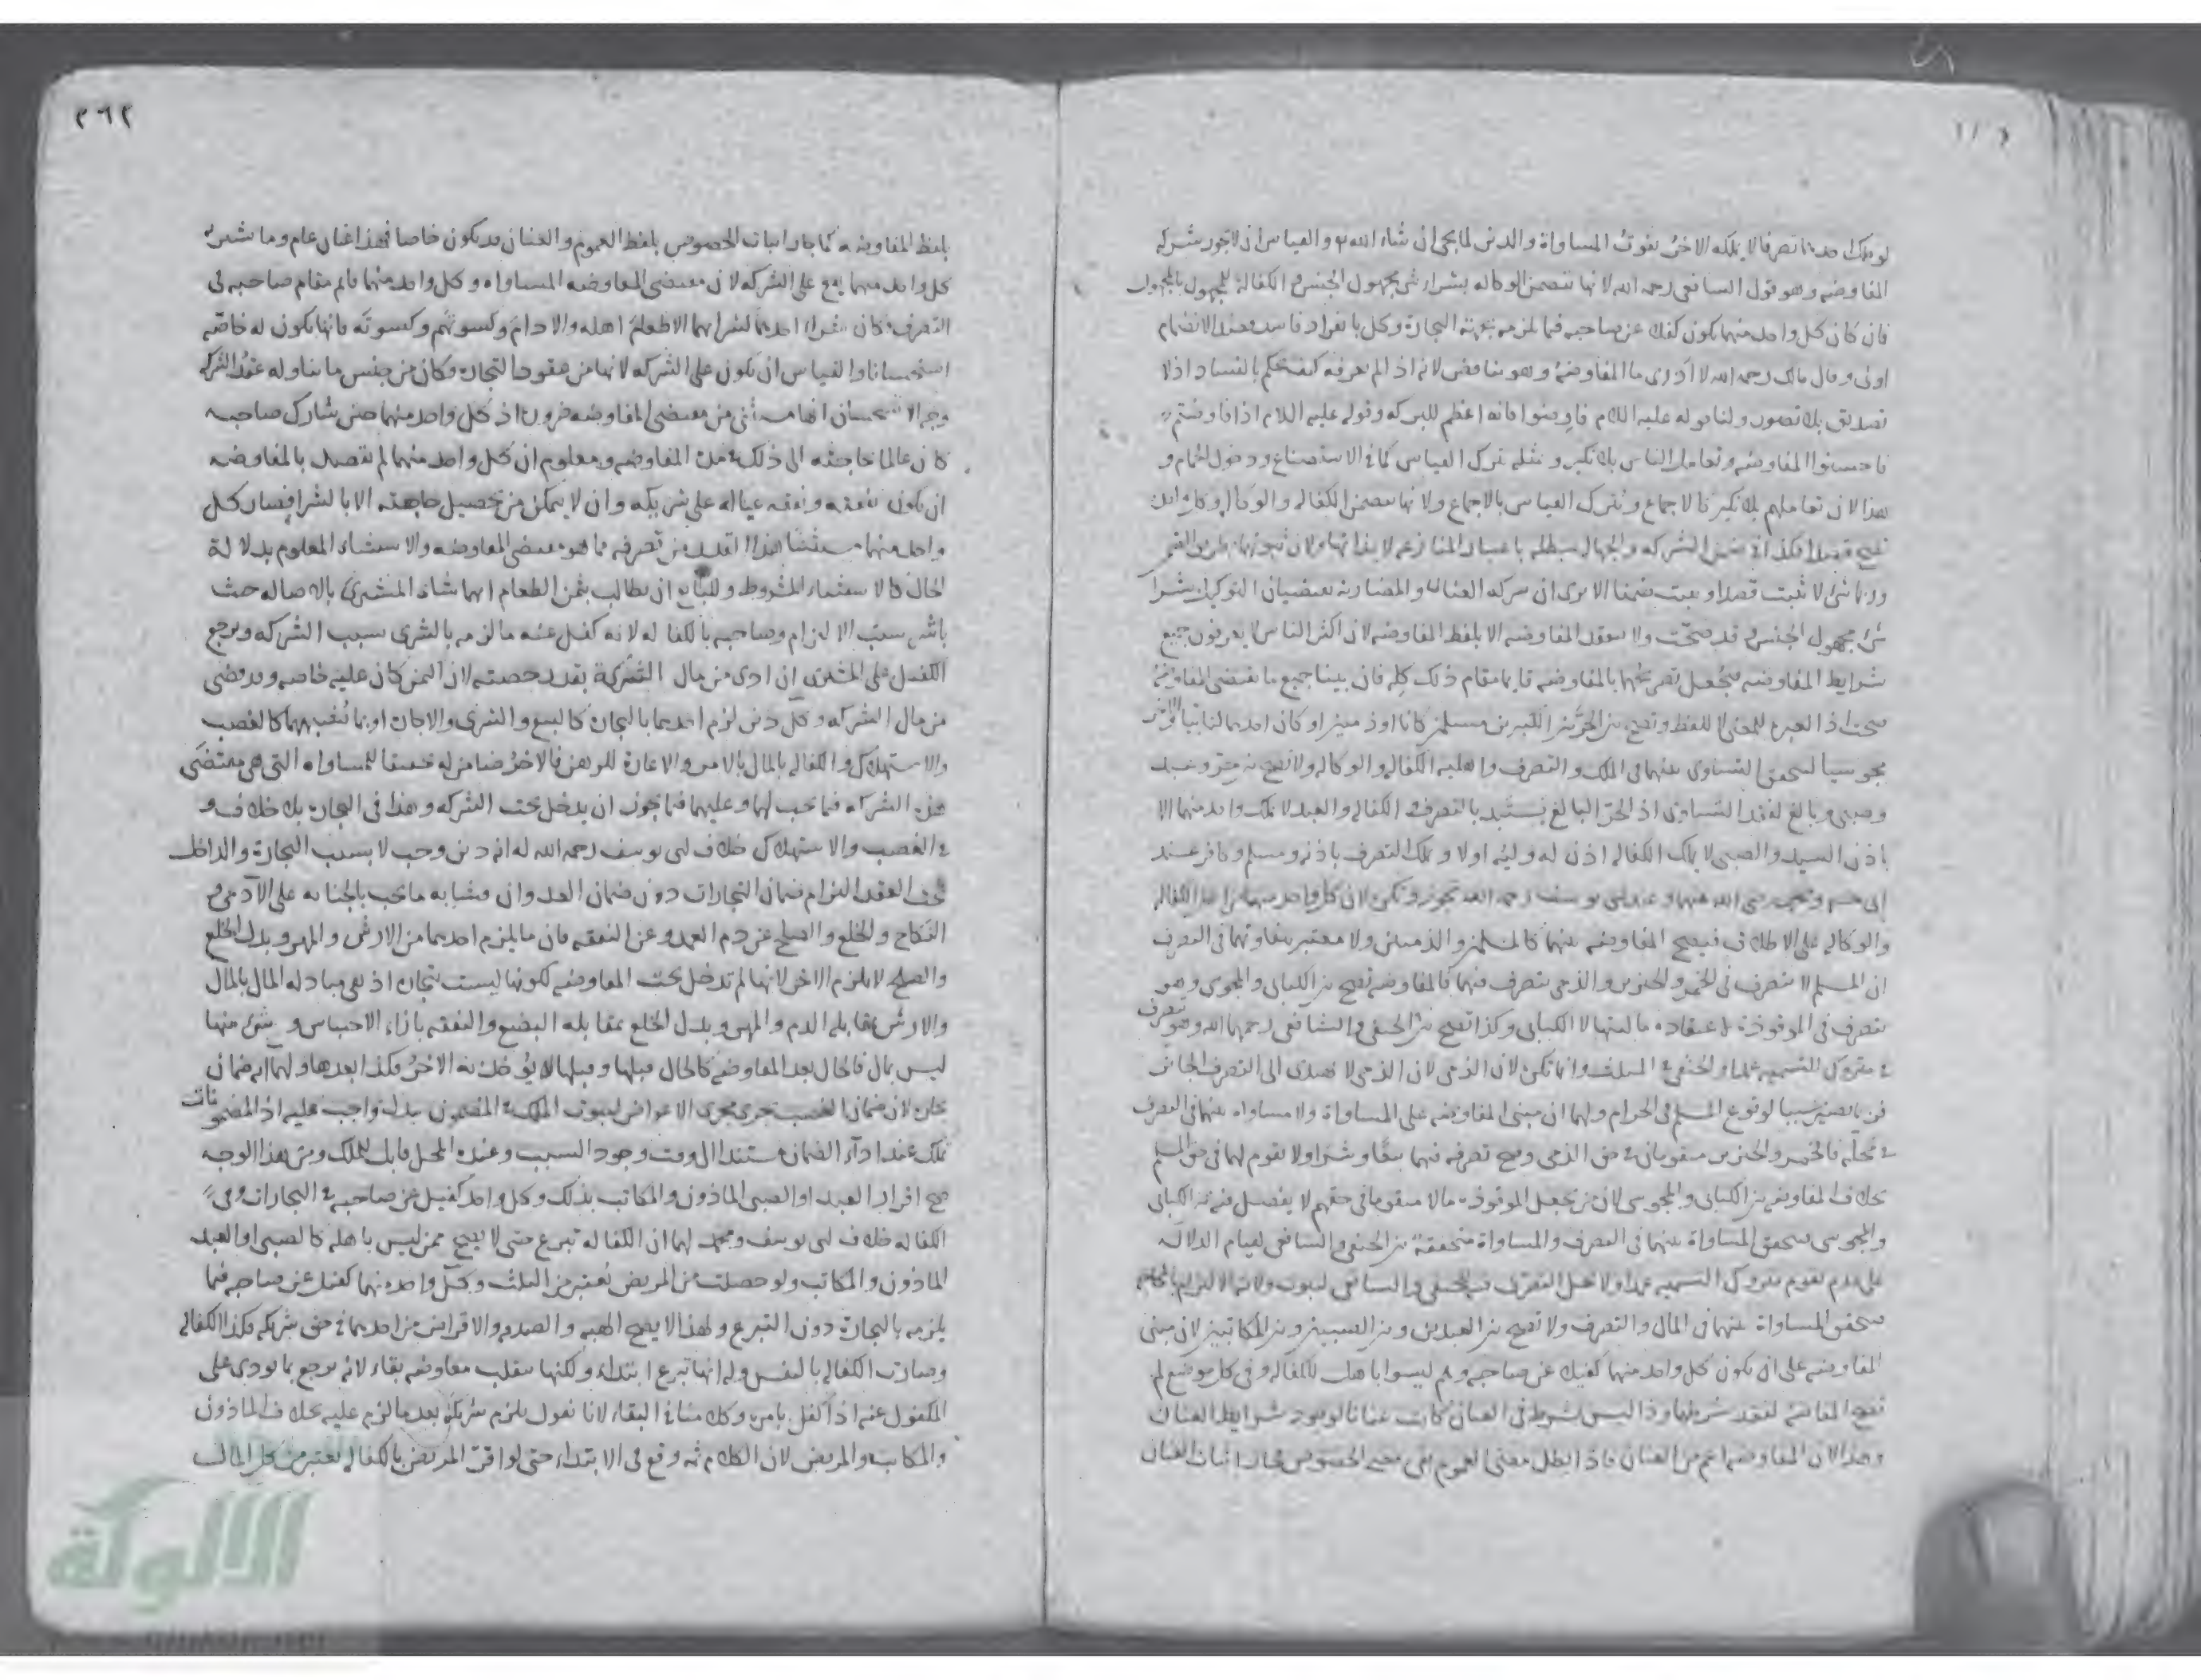 لو ملك احدهما تصرفا لا يملكه الاخر يفوت المساواة والدين لما يجي ان شاء الله والقياس ان لا تجوز شركة
المفاوضه وهو قول الشافعي رحمه الله لانها تتضمن الوكاله بشراء شي مجهول الجنس والكفالة للمجهول بالمجهول
فان كان كل واحد منهما يكون كفيلا عن صاحبه فيما يلزمه بجهة التجارة وكل بانفراده فاسد فعند الانضمام
اولى وقال مالك رحمه الله لا ادرى ما المفاوضة وهو تناقض لانه اذا لم يعرفه كيف يحكم بالفساد اذ لا
تصديق بلا تصور ولنا قوله عليه السلام فاوضوا فانه اعظم للبركه وقوله عليه السلام اذا فاوضتم
فاحسنوا المفاوضه وتعامل الناس بلا نكير وبمثله يترك القياس كما في الاستصناع ودخول الحمام و
هذا لان تعاملهم بلا نكير كالاجماع ويترك القياس بالاجماع ولانها تتضمن الكفاله والوكالة وكل ذلك
يصح قصدا فكذا في ضمن الشركه والجهاله مبطله باعتبار المنازعه لا بذاتها ولان ثبوتها بطريق الضمن
وربما شي لا يثبت قصدا ويثبت ضمنا الا يرى ان شركه العنان والمضاربه يقتضيان التوكيل بشراء
شي مجهول الجنس وقد صحت ولا تنعقد المفاوضه الا بلفظ المفاوضه لان اكثر الناس لا يعرفون جميع
شرايط المفاوضه فيجعل تصريحهما بالمفاوضه قايما مقام ذلك كله فان بينا جميع ما تقتضى المفاوضة
صحت اذ العبرة للمعنى لا للفظ وتصح بين الحرين الكبيرين مسلمين كانا او ذميين او كان احدهما كتابيا والاخر
مجوسيا لتحقق التساوى بينهما في الملك والتصرف واهلية الكفاله والوكاله ولا تصح بين حر وعبد
وصبي وبالغ لفقد التساوى اذ الحر البالغ يستبد بالتصرف والكفاله والعبد لا يملك واحد منهما الا
باذن السيد والصبي لا يملك الكفاله اذن له وليه اولا ويملك التصرف باذنه ومسلم وكافر عند
ابى حنيفه ومحمد رضى الله عنهما وعند ابى يوسف رحمه الله تجوز وتكره لان كل واحد منهما من اهل الكفاله
والوكاله على الاطلاق فيصح المفاوضه بينهما كالمسلمين والذميين ولا معتبر بتفاوتهما في التصرف
ان المسلم لا يتصرف في الخمر والخنزير والذمى يتصرف فيهما كالمفاوضه تصح بين الكتابى والمجوسى وهو
يتصرف في الموقوذة لاعتقاده ماليتها لا الكتابى وكذا تصح بين الحنفى والشافعى رحمهما الله وهو يتصرف
في متروك التسميه عمدا والحنفى المثلث وانما تكره لان الذمى لا يهتدى الى التصرف الجائز
فربما يصير سببا لوقوع المسلم في الحرام ولهما ان مبنى المفاوضه على المساواة ولا مساواه بينهما في التصرف
في محله فالخمر والخنزير متقومان في حق الذمى ويصح تصرفه فيهما بيعا وشراء ولا تقوم لهما في حق المسلم
بخلاف المفاوضه بين الكتابى والمجوسى لان من يجعل الموقوذة مالا متقوما في حقهم لا يفصل فيه بين الكتابى
والمجوسى فتحقق المساواة بينهما في التصرف والمساواة متحققة بين الحنفى والشافعى لقيام الدلاله
على عدم تقوم متروك التسميه عمدا ولا يحل التصرف فيه للحنفى والشافعى لثبوت ولاية الالزام بالمحاجة
فتحقق المساواة بينهما في المال والتصرف ولا تصح بين العبدين وبين الصبيين وبين المكاتبين لان مبنى
المفاوضه على ان يكون كل واحد منهما كفيلا عن صاحبه وهم ليسوا باهل للكفاله وفي كل موضع لم
تصح المفاوضة لفقد شرطها وذا ليس بشرط في العنان كانت عنانا لوجود شرايط العنان
وهذا لان المفاوضه اعم من العنان فاذا بطل معنى العموم بقى معنى الخصوص فجاز اثبات العنان
٣٦٢
بلفظ المفاوضة كما جاز اثبات الخصوص بلفظ العموم والعنان قد يكون خاصا فهذا عنان عام وما يشتريه
كل واحد منهما يقع على الشركه لان مقتضى المفاوضه المساواه وكل واحد منهما قايم مقام صاحبه في
التصرف وكان شراء احدهما كشرايهما الا طعام اهله والادام وكسوتهم وكسوته فانها يكون له خاصه
استحسانا والقياس ان يكون على الشركه لانها من عقود التجارة وكان من جنس ما تناوله عقد الشركة
وجه الاستحسان انها مستثنى من مقتضى المفاوضه ضرورة اذ كل واحد منهما حين شارك صاحبه
كان عالما بحاجته الى ذلك في مدة المفاوضه ومعلوم ان كل واحد منهما لم يقصد بالمفاوضه
ان يكون نفقته ونفقه عياله على شريكه وان لا يتمكن من تحصيل حاجته الا بالشراء فصار كل
واحد منهما مستثنيا هذا القدر من تصرفه مما هو مقتضى المفاوضه والاستثناء المعلوم بدلالة
الحال كالاستثناء المشروط وللبايع ان يطالب بثمن الطعام ايهما شاء المشترى بالاصاله حيث
باشر سبب الالتزام وصاحبه بالكفاله لانه كفل عنه ما لزمه بالشرى بسبب الشركه ويرجع
الكفيل على المشترى ان ادى من مال الشركة بقدر حصته لان الثمن كان عليه خاصه وقد قضى
من مال الشركه وكل دين لزم احدهما بالتجارة كالبيع والشرى والاجارة او بما يشبهها كالغصب
والاستهلاك والكفاله بالمال بالامر والاعارة للرهن فالاخر ضامن له تحقيقا للمساواه التى هى مقتضى
هذه الشركه فيما يجب لهما وعليهما فيما يجوز ان يدخل تحت الشركه وهذا في التجارة بلا خلاف و
في الغصب والاستهلاك خلاف ابى يوسف رحمه الله له انه دين وجب لا بسبب التجارة والداخل
تحت العقد التزام ضمان التجارات دون ضمان العدوان فشابه ما يجب بالجنايه على الآدمى و
النكاح والخلع والصلح عن دم العمد وعن النفقه فان ما يلزم احدهما من الارش والمهر وبدل الخلع
والصلح لا يلزم الاخر لانها لم تدخل تحت المفاوضه لكونها ليست بتجارة اذ هى مبادله المال بالمال
والارش بمقابله الدم والمهر وبدل الخلع بمقابله البضع والنفقه بازاء الاحتباس وشئ منها
ليس بمال فالحال بعد المفاوضة كالحال قبلها وقبلها لا يؤاخذ به الاخر فكذا بعدها ولهما انه ضمان
تجارة لان ضمان الغصب يجرى مجرى الاعواض لثبوت الملك في المضمون ببدل واجب عليه اذ المضمونات
تملك عند اداء الضمان مستندا الى وقت وجود السبب وعنده المحل قابل للملك ومن هذا الوجه
صح اقرار العبد او الصبى الماذون والمكاتب بذلك وكل واحد كفيل عن صاحبه في التجارات وفي
الكفاله خلاف ابى يوسف ومحمد لهما ان الكفاله تبرع حتى لا يصح ممن ليس باهله كالصبى او العبد
الماذون والمكاتب ولو حصلت من المريض يعتبر من الثلث وكل واحد منهما كفيل عن صاحبه فيما
يلزمه بالتجارة دون التبرع ولهذا لا يصح الهبه والصدقه والاقراض من احدهما في حق شريكه فكذا الكفاله
وصارت الكفاله بالنفس وله انها تبرع ابتداء ولكنها تنقلب معاوضه بقاء لانه يرجع بما يودى على
المكفول عنه اذا كفل بامره وكلامنا في البقاء لانا نقول يلزم شريكه بعد ما لزم عليه بخلاف الماذون
والمكاتب والمريض لان الكلام ثمه وقع في الابتداء حتى لو اقر المريض بالكفاله يعتبر من كل المال
الألوكة